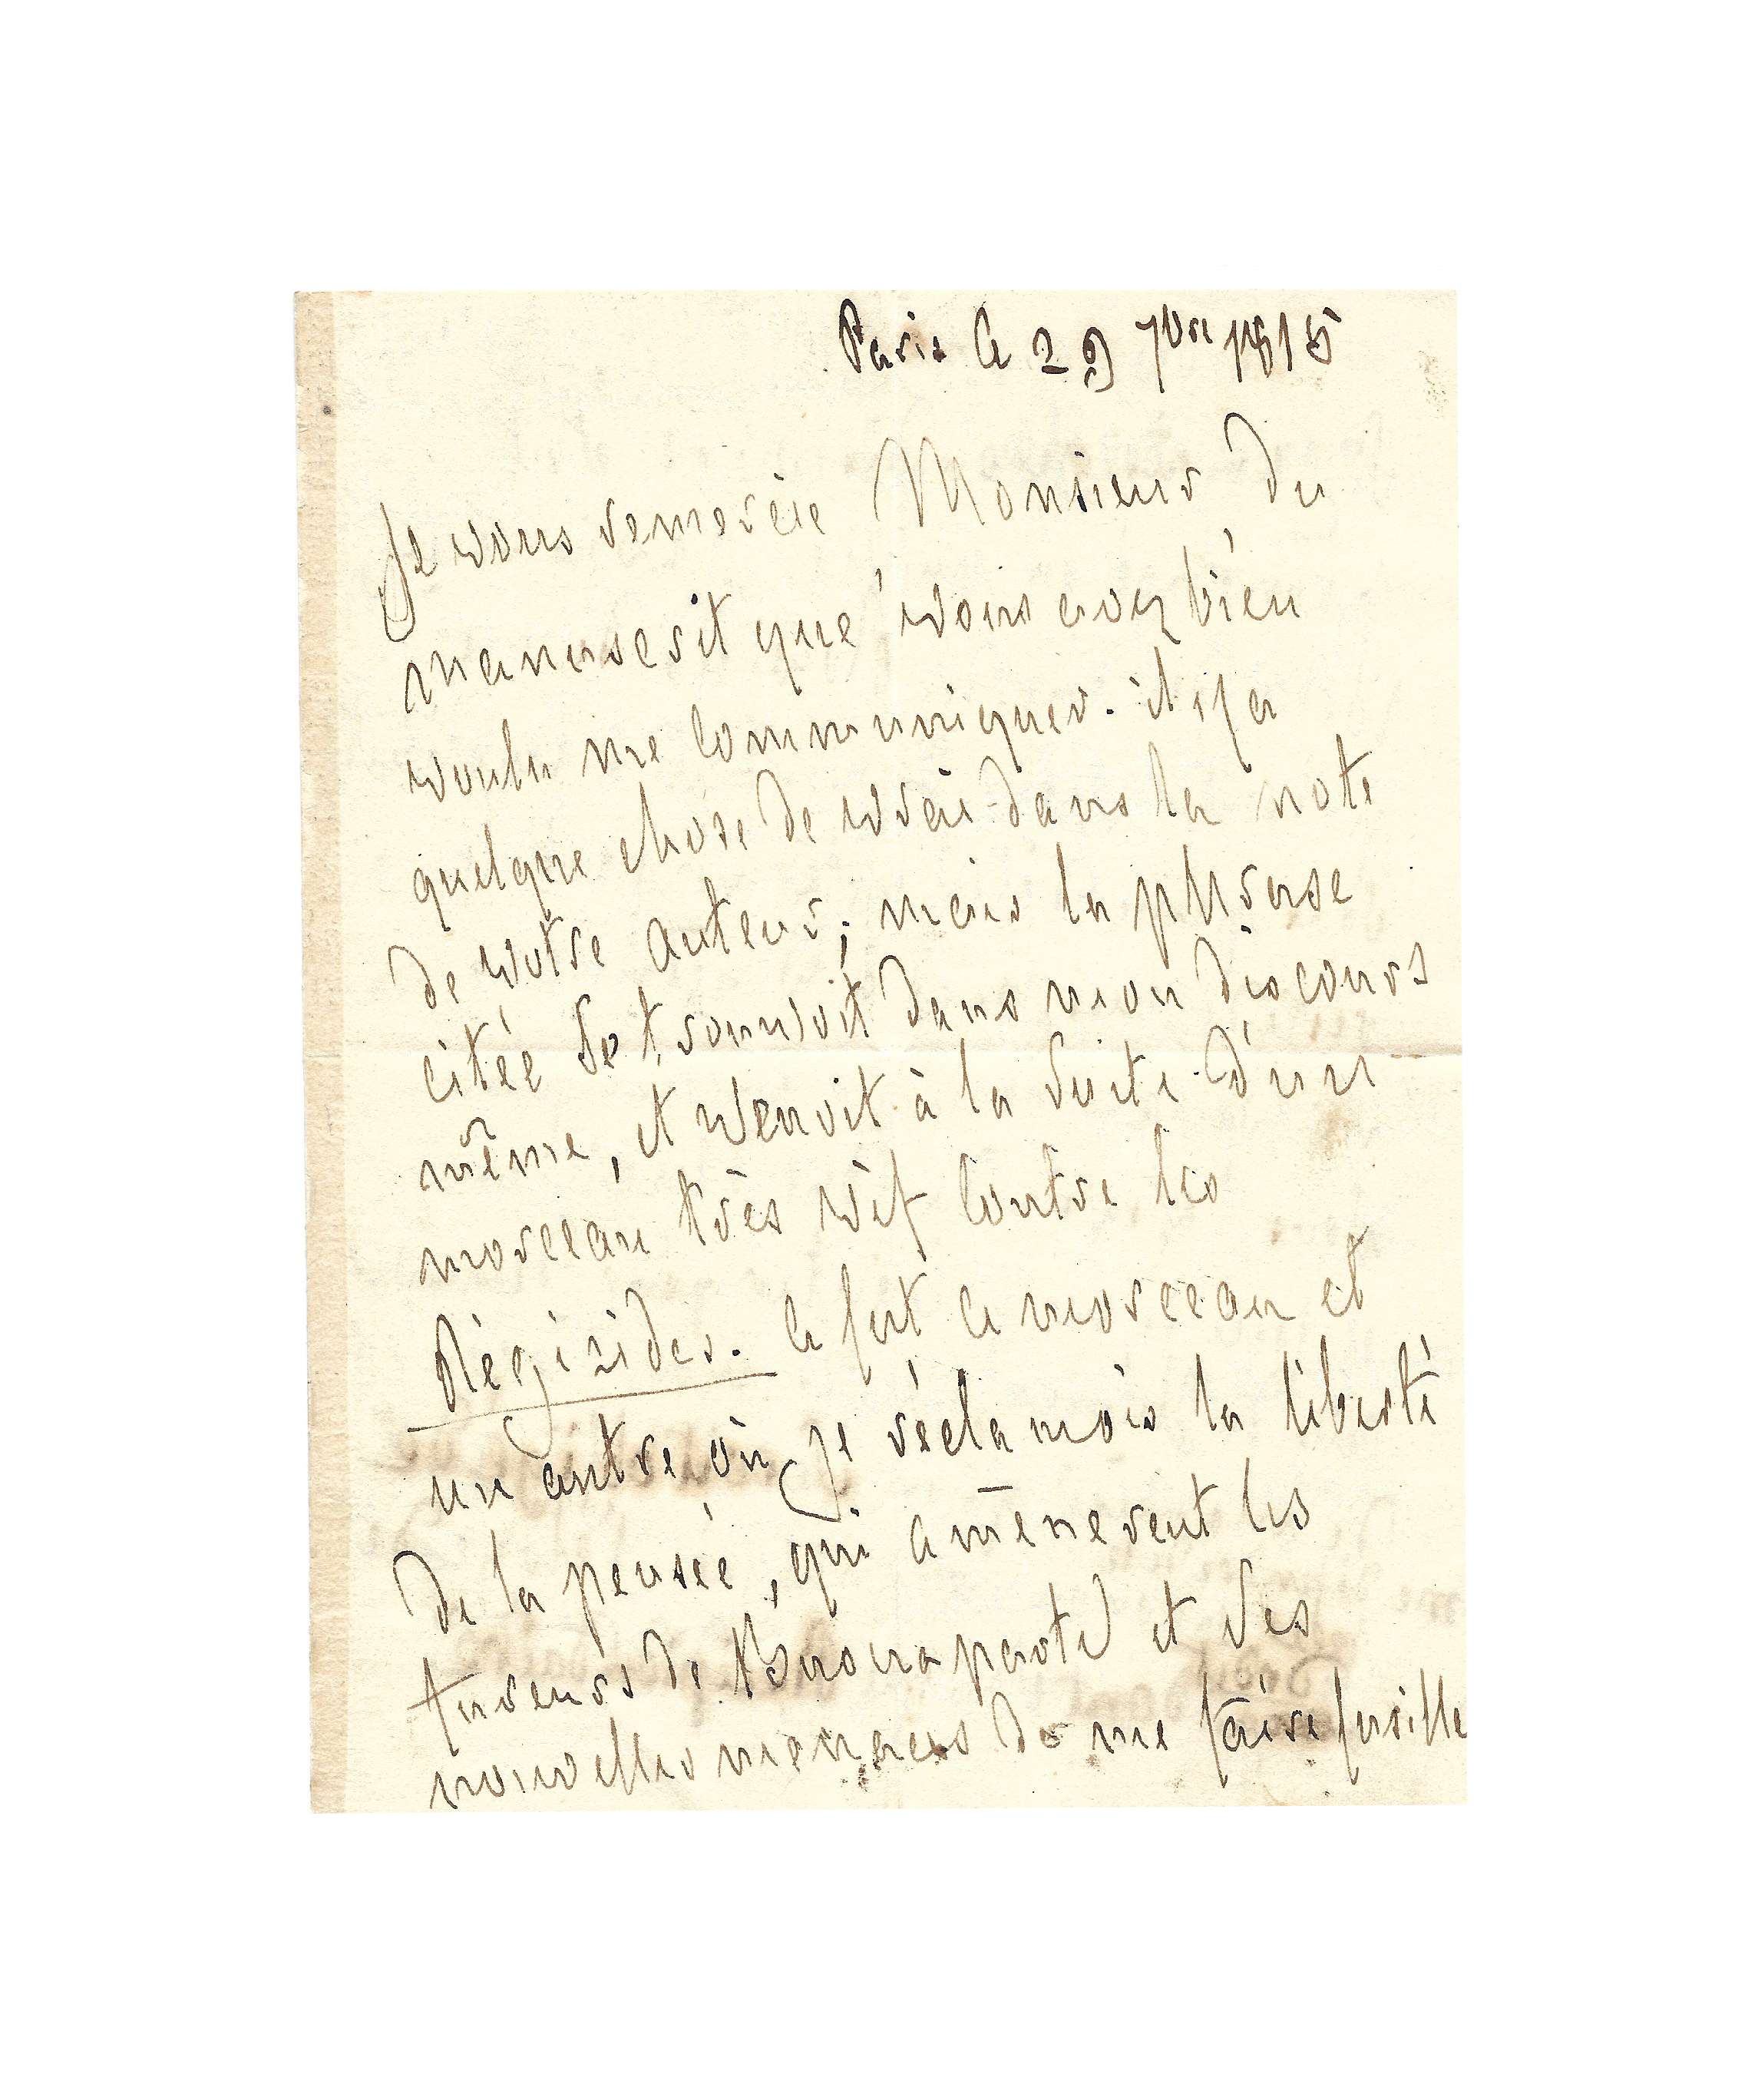 Paris le 29 7bre 1815
Je vous remercie Monsieur, du
manuscrit que vous avez bien
voulu me communiquer. il y a
quelque chose de vrai dans la note
de votre auteur; mais la phrase
citée se trouvoit dans mon discours
même, et venoit à la suite d'un
morceau très vif contre les
Régicides. ce fut ce morceau et
un autre, où je réclamois la liberté
de la pensée, qui amenerent les
fureurs de Buonaparte et ses
nouvelles menaces de me faire fusille